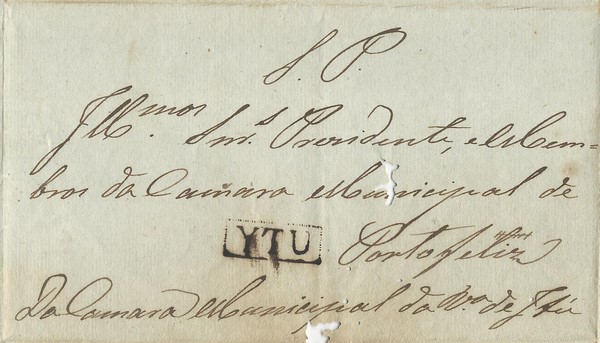 S. P.
Illmos. Snrs. Presidente, e Mem=
bros da Camara Municipal de
YTU Portofeliz
Da Camara Municipal da Va. de Itú